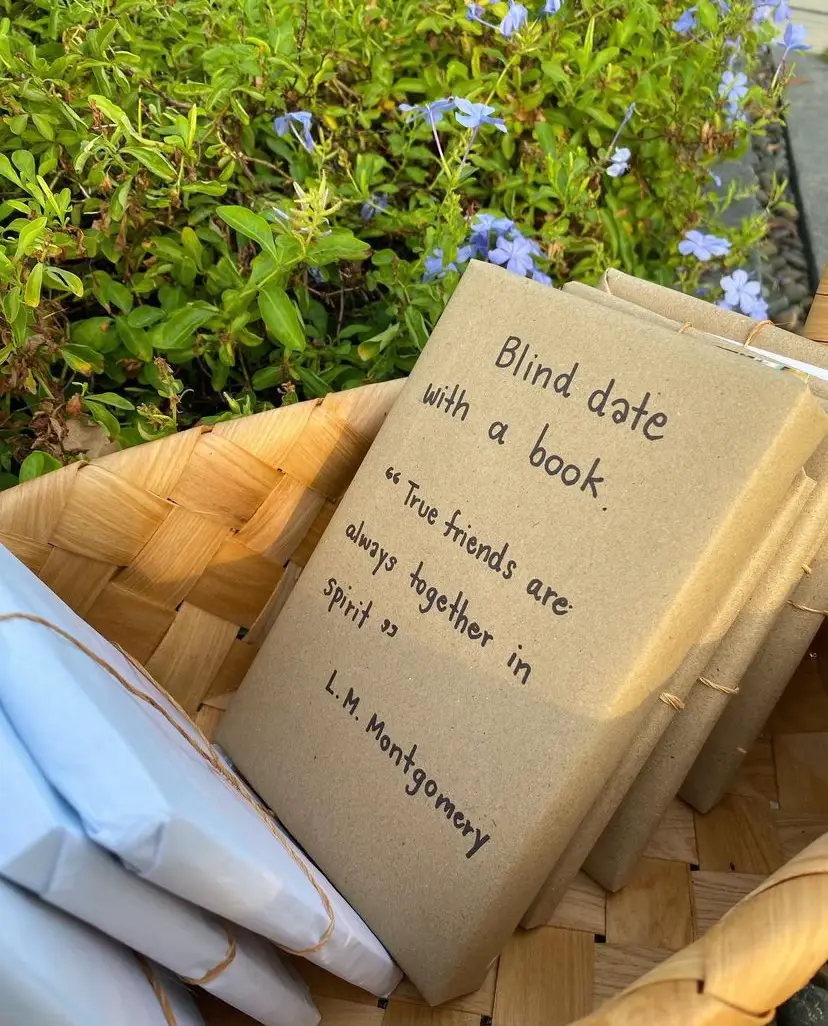 Blind date
with a book.
“ True friends are
always together in
spirit ”
L. M. Montgomery